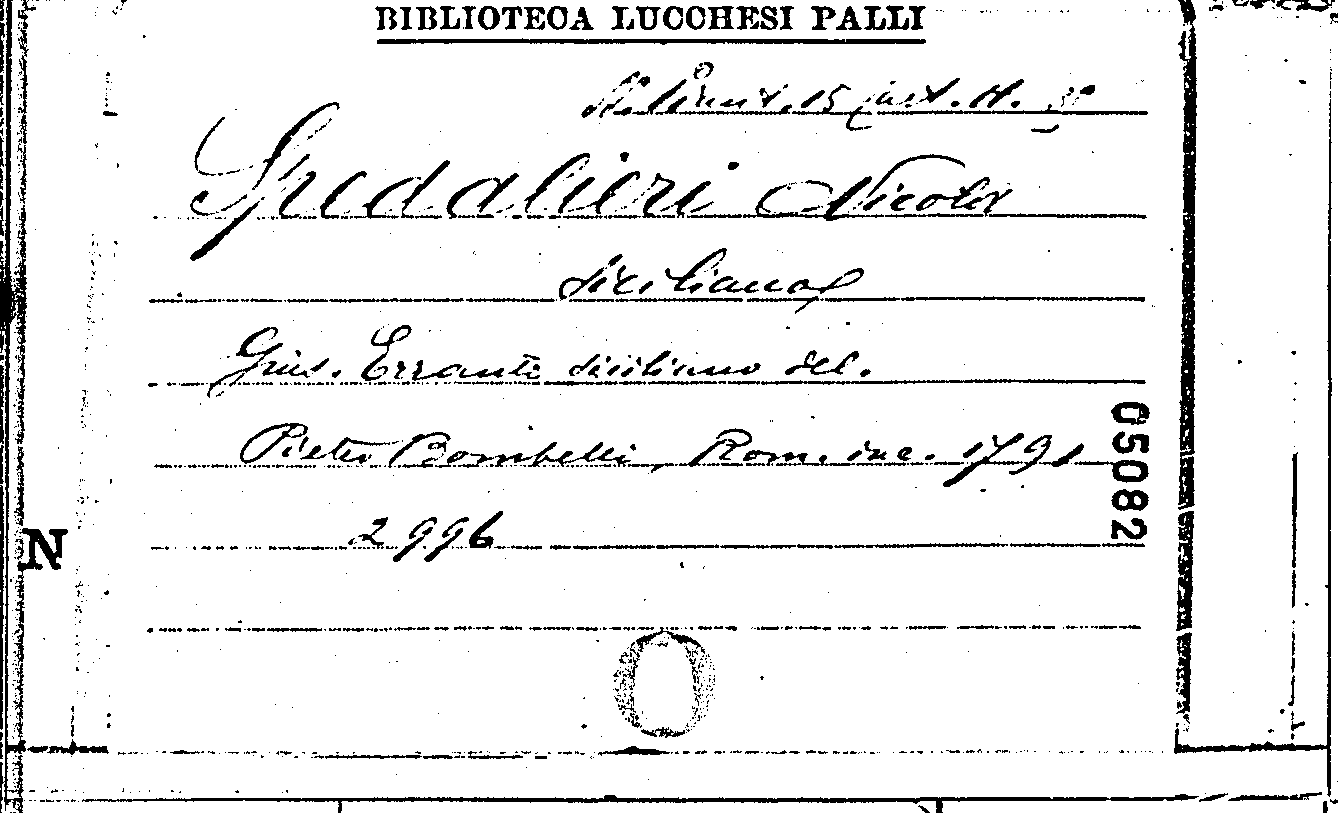 BIBLIOTECA LUCCHESI PALLI
15 cart. H.
Spedalieri Nicola
siciliano
Gius. Errante siciliano del.
Pietro Bombelli, Rom. inc. 1791
2996
05082
N